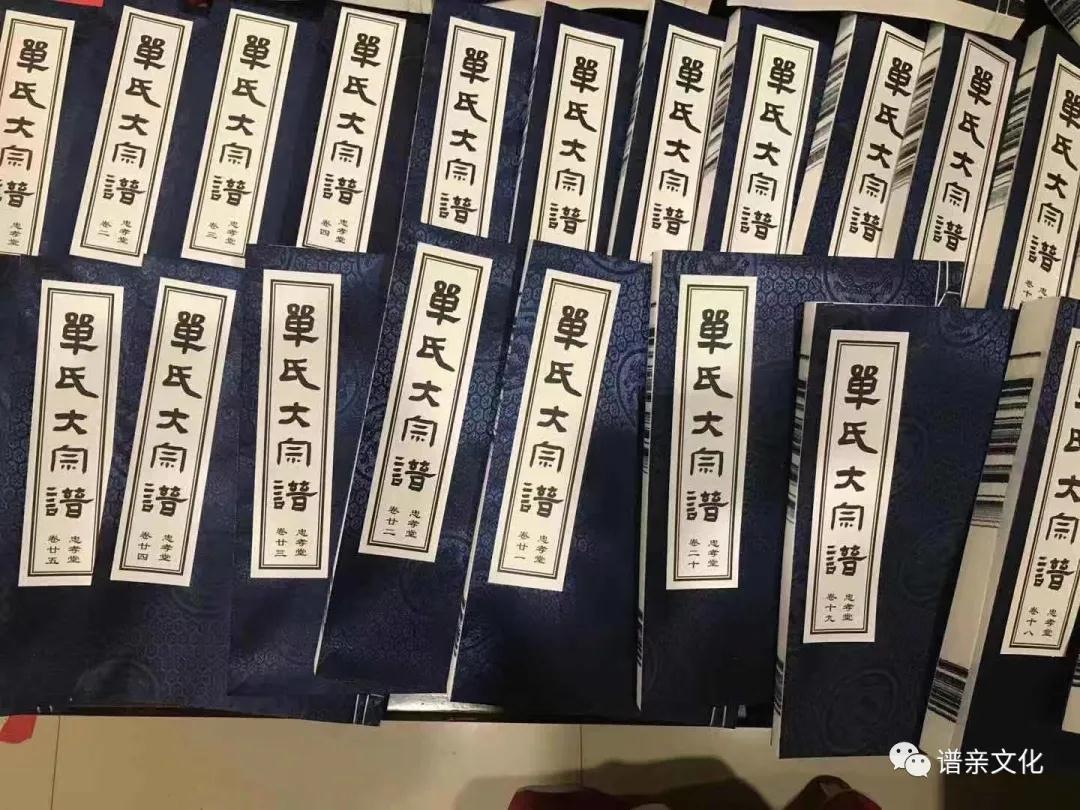 單氏大宗譜
忠孝堂
單氏大宗譜
忠孝堂
卷二
單氏大宗譜
忠孝堂
卷三
單氏大宗譜
忠孝堂
卷四
單氏大宗譜
單氏大宗譜
單氏大宗譜
單氏大宗譜
單氏大宗譜
單氏大宗譜
單氏大宗譜
卷十
單氏大宗譜
忠孝堂
卷廿五
單氏大宗譜
忠孝堂
卷廿四
單氏大宗譜
忠孝堂
卷廿三
單氏大宗譜
忠孝堂
卷廿二
單氏大宗譜
忠孝堂
卷廿一
單氏大宗譜
忠孝堂
卷二十
單氏大宗譜
忠孝堂
卷十九
單氏大宗譜
忠孝堂
卷十八
谱亲文化